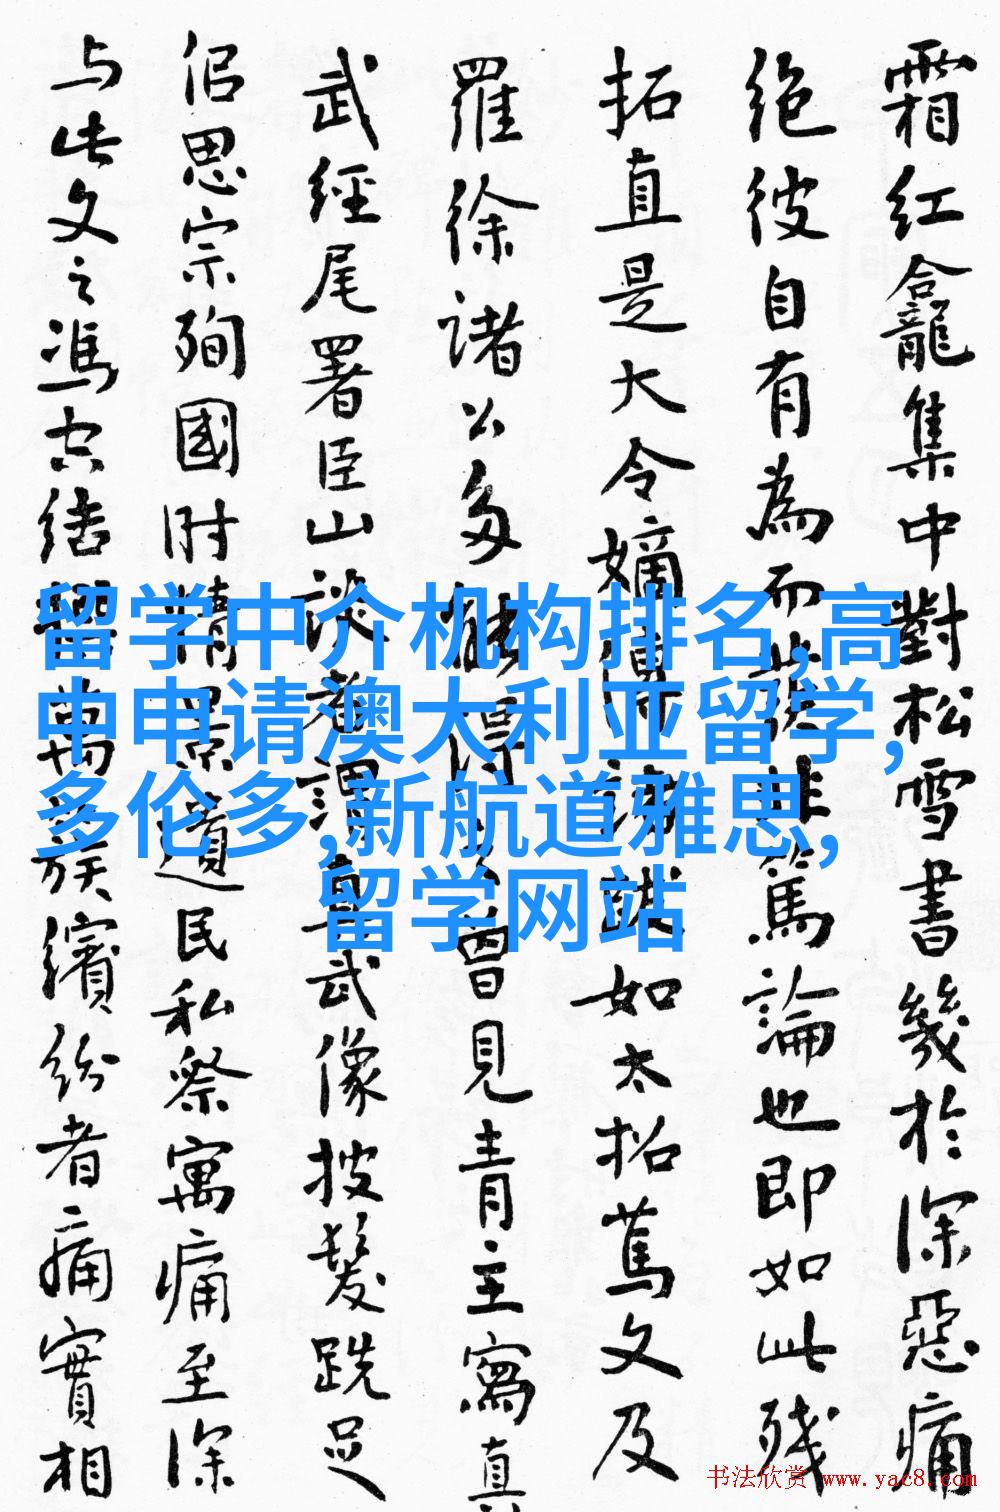 霜红龕集中對松雪書幾於深惡痛
絶彼自有為而非篤論也即如此残
拓直是大令嫡如太招篤文及
羅徐諸公多得曾見青主寫真
武經尾署臣山談武像披髮跣足
侣思宗殉國时情景遺民私察寓痛至深
与此文之馮空結萬族繽紛者痛實相
留学中介机构排名,高
中申请澳大利亚留学,
多伦多,新航道雅思,
留学网站
书法欣赏 www.yac8.com